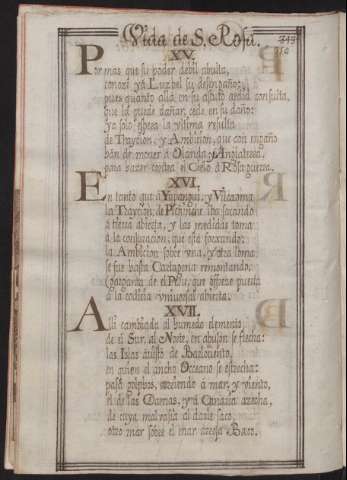 Vida de S. Rosa.
XV.
Por mas que su poder debil abulta,
conoze yá Luzbel su desengaño;
pues quanto alla en su astuto ardid consulta,
que la puede dañar, cede en su daño:
ya solo espera la ultima resulta
de Traycion, y Ambicion, que con engaño
han de mover a Olanda, y Anglaterra,
para hazer contra el Cielo á Rosa guerra.
XVI.
En tanto que a Yupangui, y Vilcaoma
la Traycion, de Pichincha iba sacando
á tierra abierta, y las medidas toma
á la conjuracion, que está forxando:
la Ambicion sobre una, y otra loma
se fue hasta Cartagena remontando;
Garganta de el Perú, que ofrece puerta
á la codicia universal abierta.
XVII.
Alli cambiada al humedo elemento
de el Sur, al Norte, en abuson se flecha:
las Islas de Barlovento,
en quien al ancho Occeano se estrecha:
pasó golphos, atendiendo á mar, y viento,
si de las Damas, y á Canaria azecha,
de cuya malvasia al dar le saco,
otro mar sobre el mar Baco.